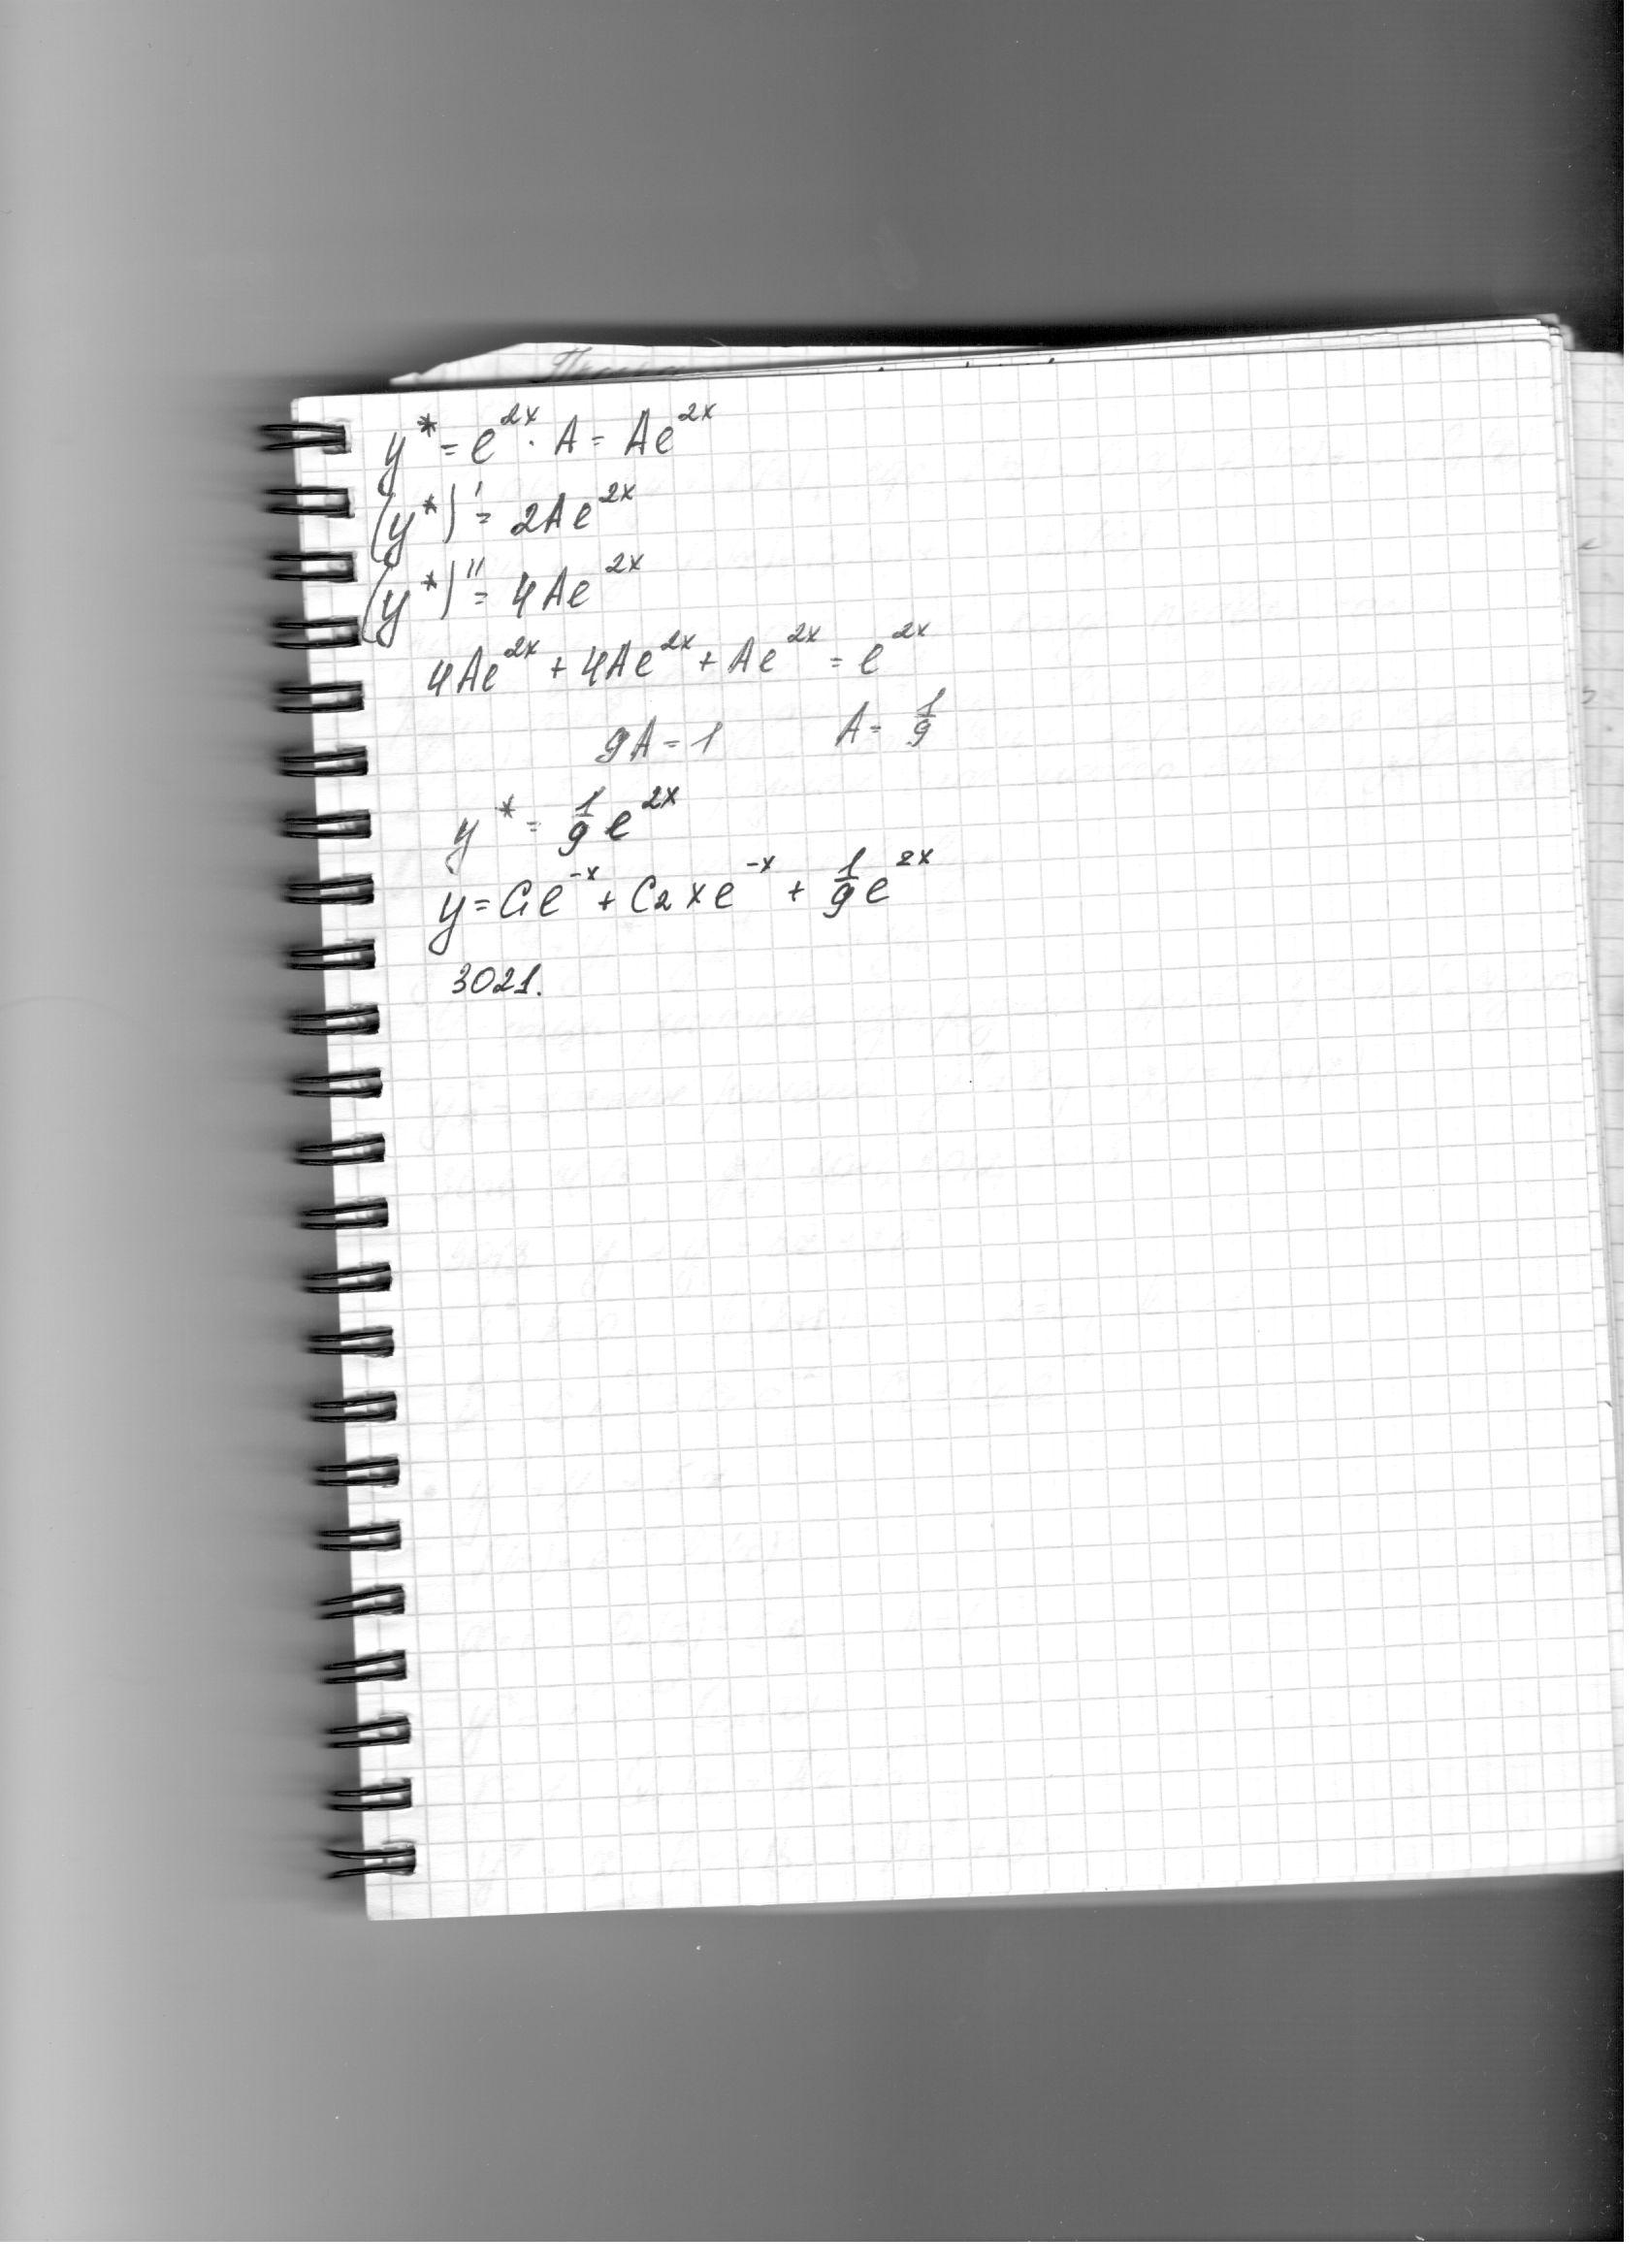 y* = e^{2x} · A = Ae^{2x}
(y*)' = 2Ae^{2x}
(y*)'' = 4Ae^{2x}
4Ae^{2x} + 4Ae^{2x} + Ae^{2x} = e^{2x}
9A = 1 A = 1/9
y* = 1/9 e^{2x}
y = C₁e^{-x} + C₂xe^{-x} + 1/9 e^{2x}
3021.